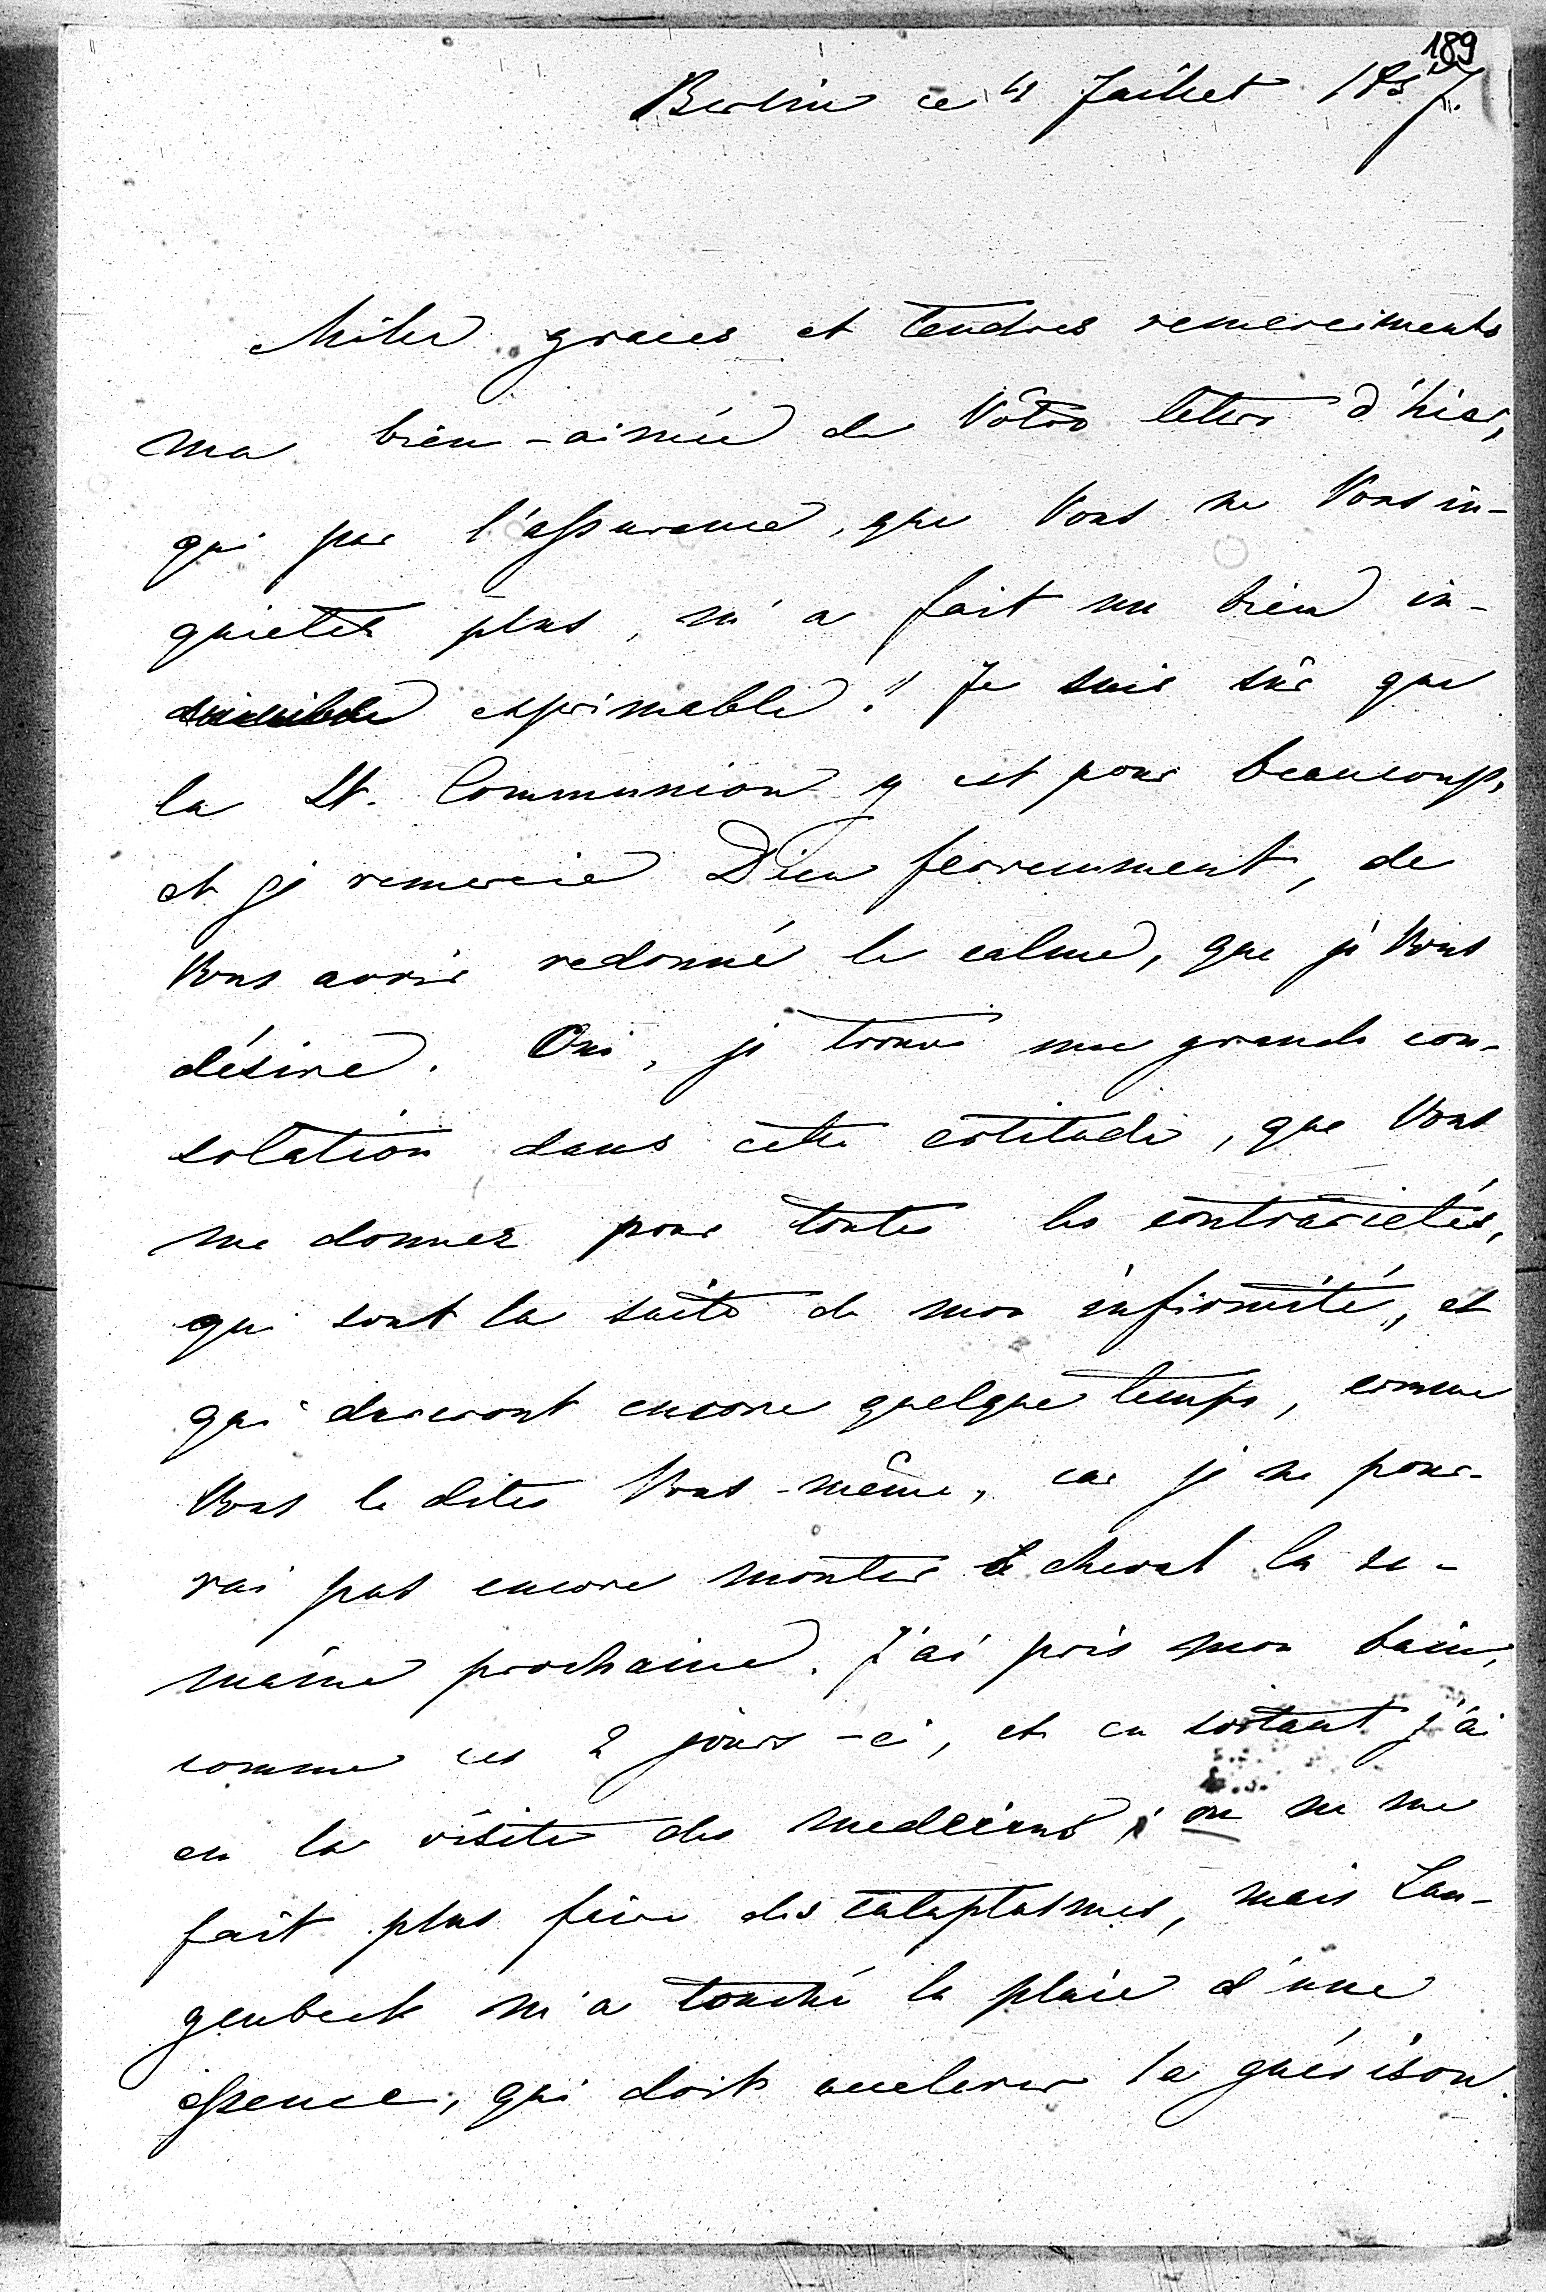 189
Berlin ce 4 Juillet 1857.
Milles graces et tendres remerciments
ma bien-aimée de Vôtre lettre d'hier,
qui par l'assurance, que Vous ne Vous in-
quietez plus, m'a fait un bien in-
exprimable! Je suis sûr que
la St. Communion y est pour beaucoup,
et je remercie Dieu ferremment, de
Vous avoir redonné le calme, que je Vous
désire. Oui, je trouve une grande con-
solation dans cette certitude, que Vous
me donnez pour toutes les contrarietés,
qui sont la suite de mon infirmité, et
qui dureront encore quelque temps, comme
Vous le dites Vous-même, car je ne pour-
rai pas encore monter à cheval la se-
maine prochaine. J'ai pris mon bain,
comme ces 2 jours-ci, et en sortant j'ai
eu la visite des medecins; on ne me
fait plus faire des cataplasmes, mais Lan-
genbeck m'a touché la plaie d'une
essence, qui doit accelerer la guérison.